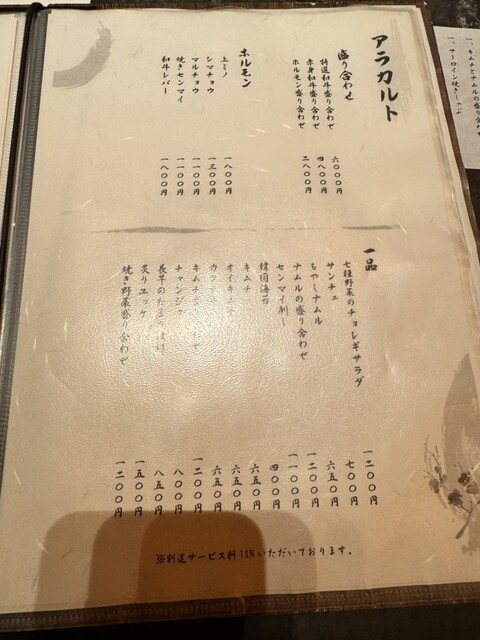 アラカルト
盛り合わせ
特選和牛盛り合わせ 六〇〇〇円
赤身和牛盛り合わせ 四八〇〇円
ホルモン盛り合わせ 二八〇〇円
ホルモン
上ミノ 一八〇〇円
シマチョウ 一三〇〇円
マルチョウ 一一〇〇円
焼きセンマイ 一一〇〇円
和牛レバー 一八〇〇円
一品
七種野菜のチョレギサラダ 一二〇〇円
サンチュ 七〇〇円
もやしナムル 六五〇円
ナムルの盛り合わせ 一二〇〇円
センマイ刺し 一一〇〇円
韓国海苔 四〇〇円
キムチ 六五〇円
オイキムチ 六五〇円
カクテキ 六五〇円
キムチ盛り合わせ 一二〇〇円
チャンジャ 八〇〇円
長芋のたまり漬け 八五〇円
炙りユッケ 一五〇〇円
焼き野菜盛り合わせ 一二〇〇円
※別途サービス料10%いただいております。
一、キムチとナムルの盛り合わせ
一、サーロイン焼きしゃぶ